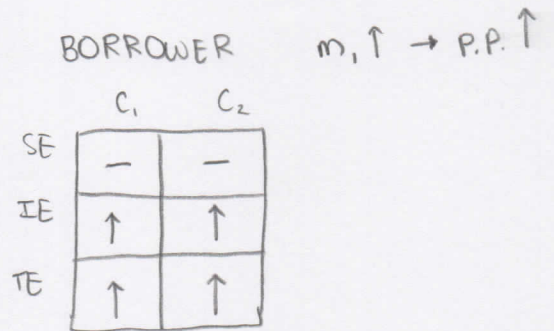 BORROWER m₁ ↑ → P.P. ↑
C₁ C₂
SE — —
IE ↑ ↑
TE ↑ ↑